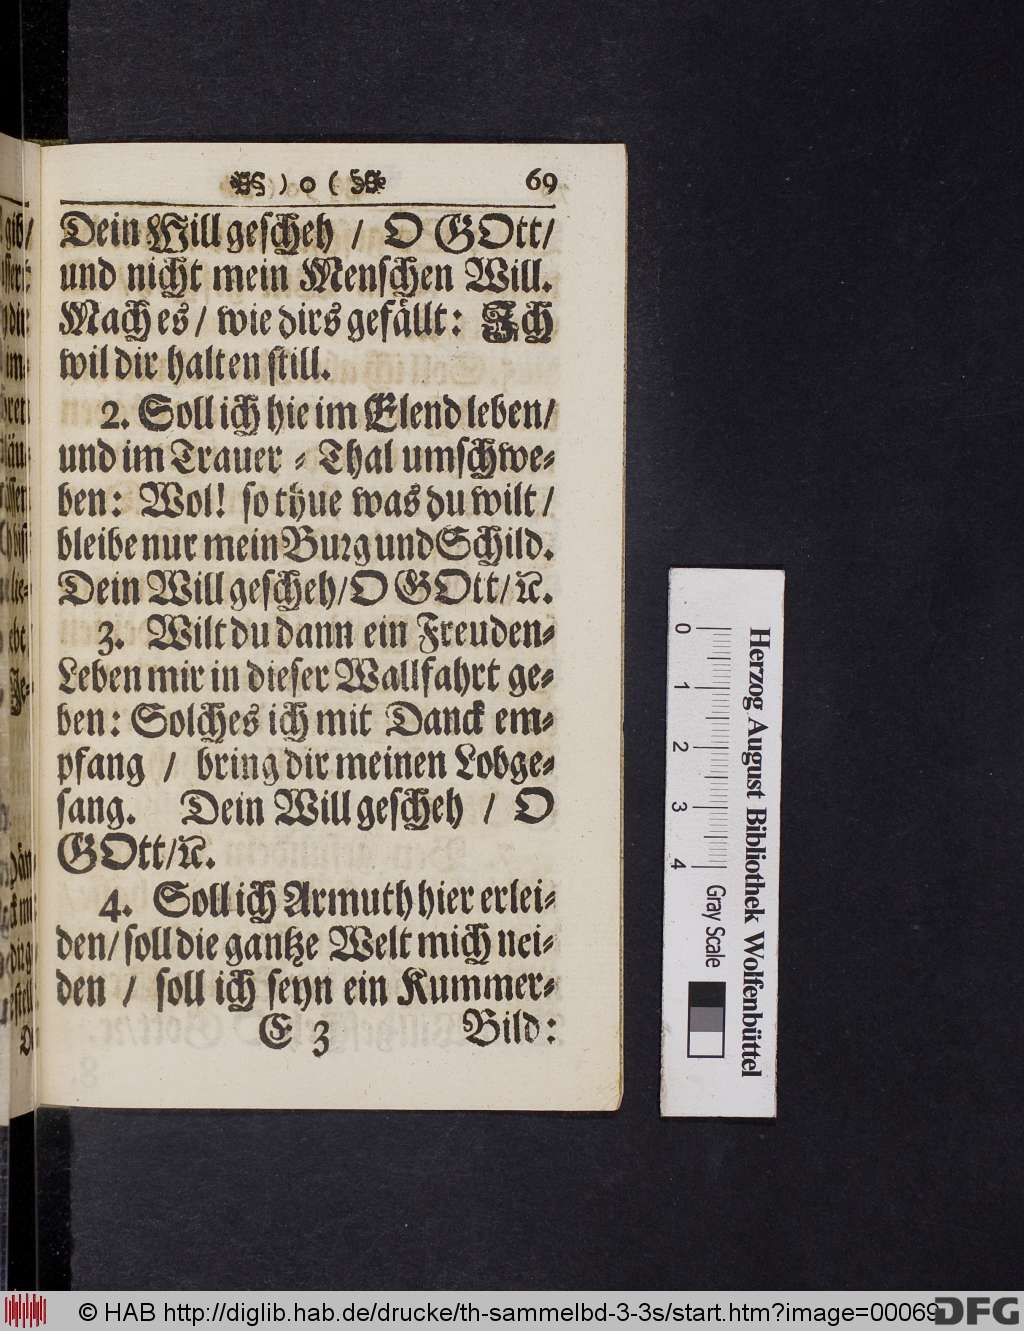 ) o ( 69
Dein Will geſcheh / O GOtt/
und nicht mein Menſchen Will.
Mach es / wie dirs gefällt: Ich
wil dir halten ſtill.
2. Soll ich hie im Elend leben/
und im Trauer ⸗ Thal umſchwe⸗
ben: Wol! ſo thue was du wilt /
bleibe nur mein Burg und Schild.
Dein Will geſcheh/ O GOtt/ ꝛc.
3. Wilt du dann ein Freuden⸗
Leben mir in dieſer Wallfahrt ge⸗
ben: Solches ich mit Danck em⸗
pfang / bring dir meinen Lobge⸗
ſang. Dein Will geſcheh / O
GOtt/ ꝛc.
4. Soll ich Armuth hier erlei⸗
den/ ſoll die gantze Welt mich nei⸗
den / ſoll ich ſeyn ein Kummer⸗
E 3 Bild:
0 1 2 3 4
Gray Scale
Herzog August Bibliothek Wolfenbüttel
© HAB http://diglib.hab.de/drucke/th-sammelbd-3-3s/start.htm?image=00069
DFG